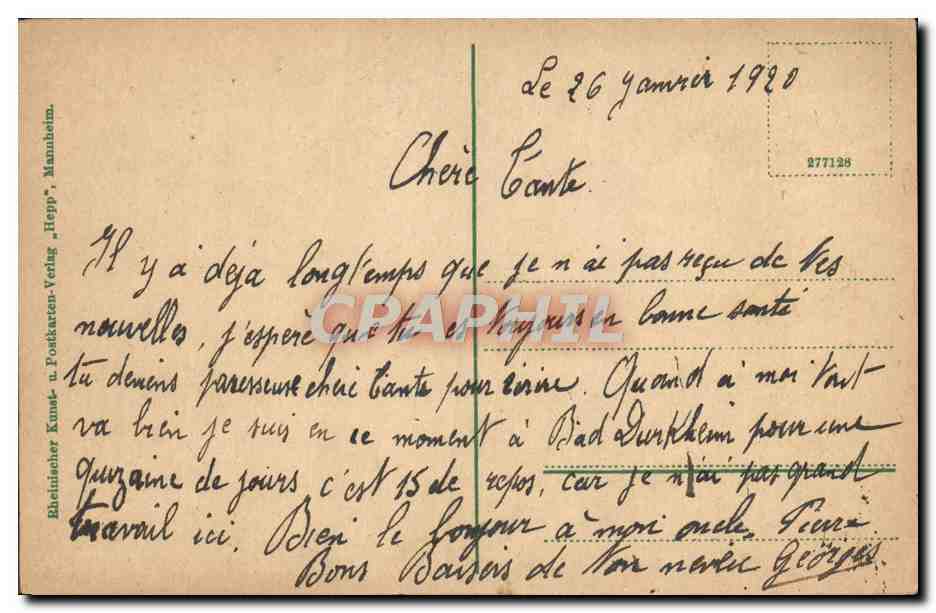 Le 26 Janvier 1920
277128
Chère Tante.
Il y a déjà longtemps que je n'ai pas reçu de tes
nouvelles, j'espère que tu es toujours en bonne santé
tu deviens paresseuse chère tante pour écrire. Quand à moi tout
va bien je suis en ce moment à Bad Durkheim pour une
quizaine de jours c'est 15 de repos, car je n'ai pas grand
travail ici. Bien le bonjour à mon oncle Pierre
Bons Baisers de ton neveu Georges.
Rheinischer Kunst- u. Postkarten-Verlag „Hepp", Mannheim.
CPAPHIL